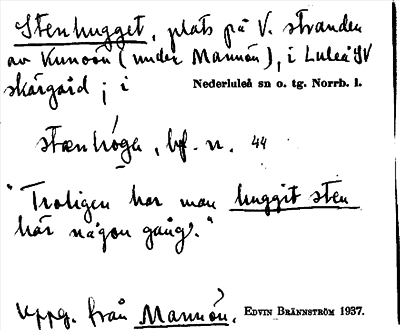 Stenhugget, plats på V. stranden
av Kunoön (under Mannön), i Luleå SV
skärgård ; i Nederluleå sn o. tg. Norrb. l.
stænhóga, bf. n. 44
"Troligen har man huggit sten
här någon gång."
Uppg. från Mannön. EDVIN BRÄNNSTRÖM 1937.